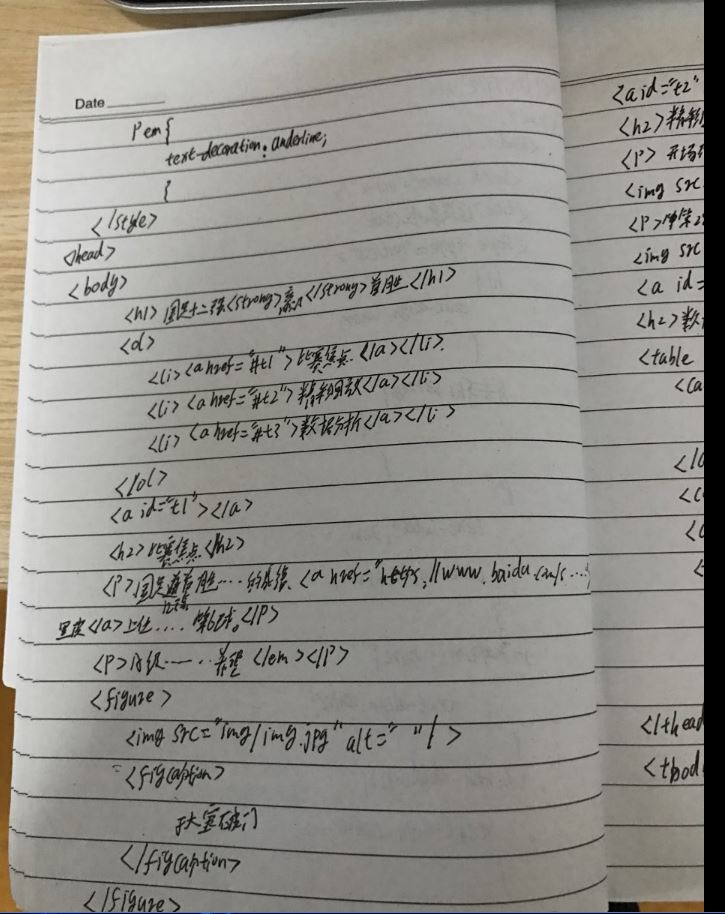 Date
P em{
text-decoration: underline;
{
</style>
<head>
<body>
<h1> 国足十二强<strong></strong>首胜</h1>
<ol>
<li><a href="#t1">比赛焦点</a></li>
<li><a href="#t2">精彩回放</a></li>
<li><a href="#t3">数据分析</a></li>
</ol>
<a id="t1"></a>
<h2>比赛焦点</h2>
<P>国足首胜……的<a href="https://www.baidu.com/s……
里皮</a>上任……</P>
<P>……</em></P>
<figure>
<img src="img/img.jpg" alt=" "/>
<figcaption>
于大宝破门
</figcaption>
</figure>
<a id="t2"
<h2>精彩
<P>开场
<img src
<P>
<img src
<a id=
<h2>数
<table
<ca
<c
</thead
<tbod